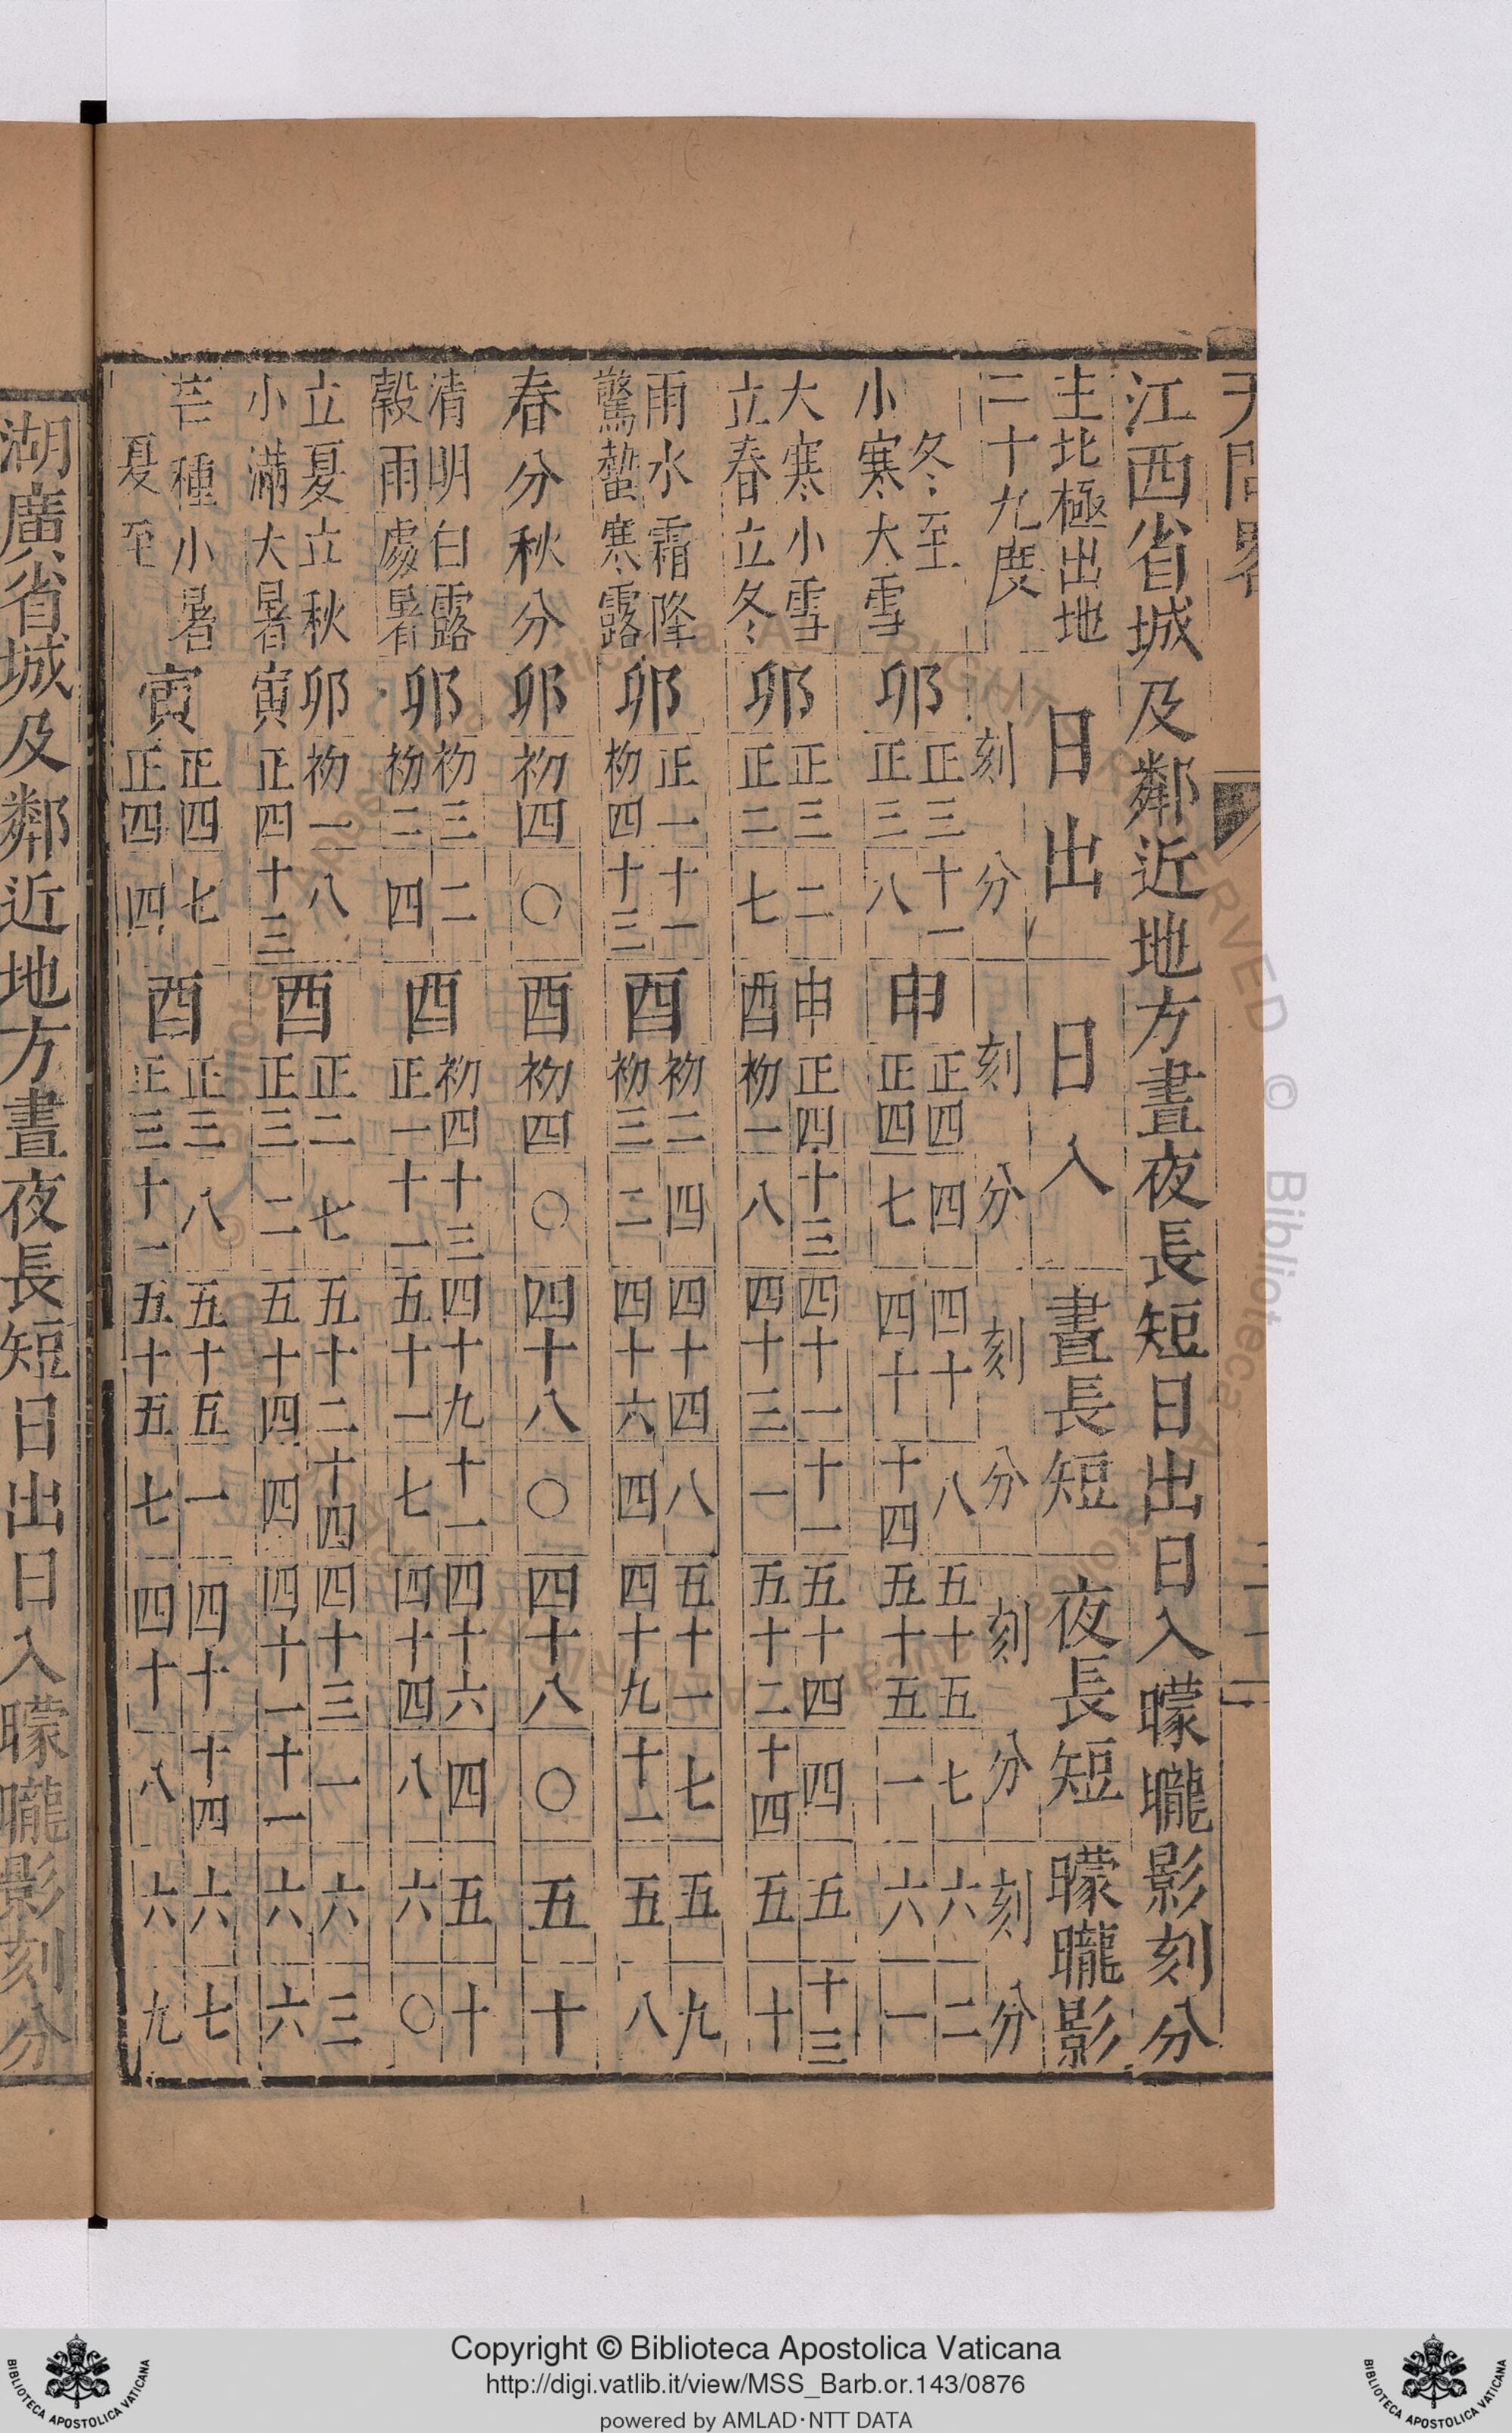 天問畧
江西省城及鄰近地方晝夜長短日出日入曚曨影刻分
主北極出地 日出 日入 晝長短 夜長短 曚曨影
二十九度 刻 分 刻 分 刻 分 刻 分 刻 分
冬至 卯 正三 十一 申 正四 四 四十 八 五十五 七 六 二
小寒大雪 正三 八 正四 七 四十 十四 五十五 一 六 一
大寒小雪 卯 正三 二 申 正四 十三 四十一 十一 五十四 四 五 十三
立春立冬 正二 七 酉 初一 八 四十三 一 五十二 十四 五 十
雨水霜降 卯 正一 十一 酉 初二 四 四十四 八 五十一 七 五 九
驚蟄寒露 初四 十三 初三 二 四十六 四 四十九 十一 五 八
春分秋分 卯 初四 〇 酉 初四 〇 四十八 〇 四十八 〇 五 十
清明白露 卯 初三 二 酉 初四 十三 四十九 十一 四十六 四 五 十
穀雨處暑 初二 四 正一 十一 五十一 七 四十四 八 六 〇
立夏立秋 卯 初一 八 酉 正二 七 五十二 十四 四十三 一 六 三
小滿大暑 寅 正四 十三 正三 二 五十四 四 四十一 十一 六 六
芒種小暑 寅 正四 七 酉 正三 八 五十五 一 四十 十四 六 七
夏至 正四 四 正三 十一 五十五 七 四十 八 六 九
湖廣省城及鄰近地方晝夜長短日出日入曚曨影刻分
Copyright © Biblioteca Apostolica Vaticana
http://digi.vatlib.it/view/MSS_Barb.or.143/0876
powered by AMLAD·NTT DATA
BIBLIOTECA APOSTOLICA VATICANA
BIBLIOTECA APOSTOLICA VATICANA